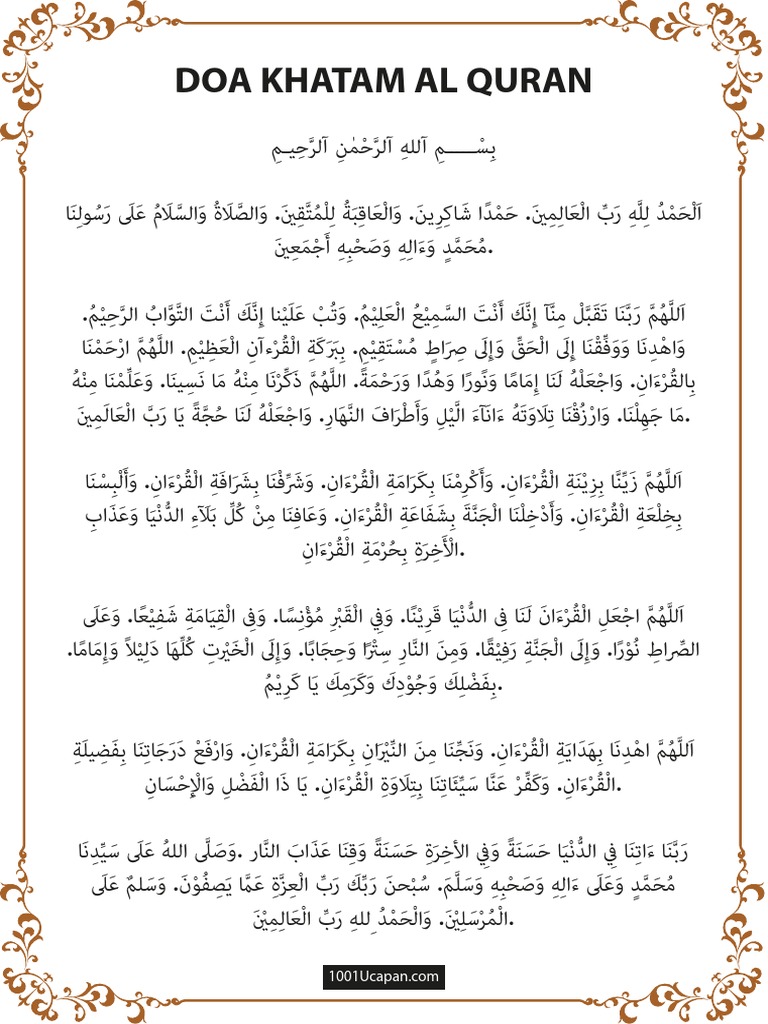 DOA KHATAM AL QURAN
بِسْـــــــمِ ٱللهِ ٱلرَّحْمٰنِ ٱلرَّحِيـمِ
اَلْحَمْدُ لِلَّهِ رَبِّ الْعَالِمِينَ. حَمْدًا شَاكِرِينَ. وَالْعَاقِبَةُ لِلْمُتَّقِينَ. وَالصَّلَاةُ وَالسَّلَامُ عَلَى رَسُولِنَا
مُحَمَّدٍ وَءَالِهِ وَصَحْبِهِ أَجْمَعِينَ.
اَللَّهُمَّ رَبَّنَا تَقَبَّلْ مِنَّآ إِنَّكَ أَنْتَ السَّمِيْعُ الْعَلِيْمُ. وَتُبْ عَلَيْنا إِنَّكَ أَنْتَ التَّوَّابُ الرَّحِيْمُ.
وَاهْدِنَا وَوَفِّقْنَا إِلَى الْحَقِّ وَإِلَى صِرَاطٍ مُسْتَقِيْمٍ. بِبَرَكَةِ الْقُرْءآنِ الْعَظِيْمِ. اللَّهُمَّ ارْحَمْنَا
بِالقُرْءَانِ. وَاجْعَلْهُ لَنَا إِمَامًا وَنُورًا وَهُدًا وَرَحْمَةً. اللَّهُمَّ ذَكِّرْنَا مِنْهُ مَا نَسِينَا. وَعَلِّمْنَا مِنْهُ
مَا جَهِلْنَا. وَارْزُقْنَا تِلَاوَتَهُ ءَانَآءَ الَّيْلِ وَأَطْرَافَ النَّهَارِ. وَاجْعَلْهُ لَنَا حُجَّةً يَا رَبَّ الْعَالَمِينَ.
اَللَّهُمَّ زَيِّنَّا بِزِينَةِ الْقُرْءَانِ. وَأَكْرِمْنَا بِكَرَامَةِ الْقُرْءَانِ. وَشَرِّفْنَا بِشَرَافَةِ الْقُرْءَانِ. وَأَلْبِسْنَا
بِخِلْعَةِ الْقُرْءَانِ. وَأَدْخِلْنَا الْجَنَّةَ بِشَفَاعَةِ الْقُرْءَانِ. وَعَافِنَا مِنْ كُلِّ بَلَآءِ الدُّنْيَا وَعَذَابِ
الْأَخِرَةِ بِحُرْمَةِ الْقُرْءَانِ.
اَللَّهُمَّ اجْعَلِ الْقُرْءَانَ لَنَا فِى الدُّنْيَا قَرِيْنًا. وَفِي الْقَبْرِ مُؤْنِسًا. وَفِى الْقِيَامَةِ شَفِيْعًا. وَعَلَى
الصِّرَاطِ نُوْرًا. وَإِلَى الْجَنَّةِ رَفِيْقًا. وَمِنَ النَّارِ سِتْرًا وَحِجَابًا. وَإِلَى الْخَيْرٰتِ كُلِّهَا دَلِيْلاً وَإِمَامًا.
بِفَضْلِكَ وَجُوْدِكَ وَكَرَمِكَ يَا كَرِيْمُ.
اَللَّهُمَّ اهْدِنَا بِهِدَايَةِ الْقُرْءَانِ. وَنَجِّنَا مِنَ النِّيْرَانِ بِكَرَامَةِ الْقُرْءَانِ. وَارْفَعْ دَرَجَاتِنَا بِفَضِيلَةِ
الْقُرْءَانِ. وَكَفِّرْ عَنَّا سَيِّئَاتِنَا بِتِلَاوَةِ الْقُرْءَانِ. يَا ذَا الْفَضْلِ وَالْإِحْسَانِ.
رَبَّنَا ءَاتِنَا فِي الدُّنْيَا حَسَنَةً وَفِي الأخِرَةِ حَسَنَةً وَقِنَا عَذَابَ النَّار .وَصَلَّى اللهُ عَلَى سَيِّدِنَا
مُحَمَّدٍ وَعَلَى ءَالِهِ وَصَحْبِهِ وَسَلَّمَ. سُبْحٰنَ رَبِّكَ رَبِّ الْعِزَّةِ عَمَّا يَصِفُوْنَ. وَسَلٰمٌ عَلَى
الْمُرْسَلِيْنَ. وَالْحَمْدُ لِلهِ رَبِّ الْعَالِمِيْنَ.
1001Ucapan.com